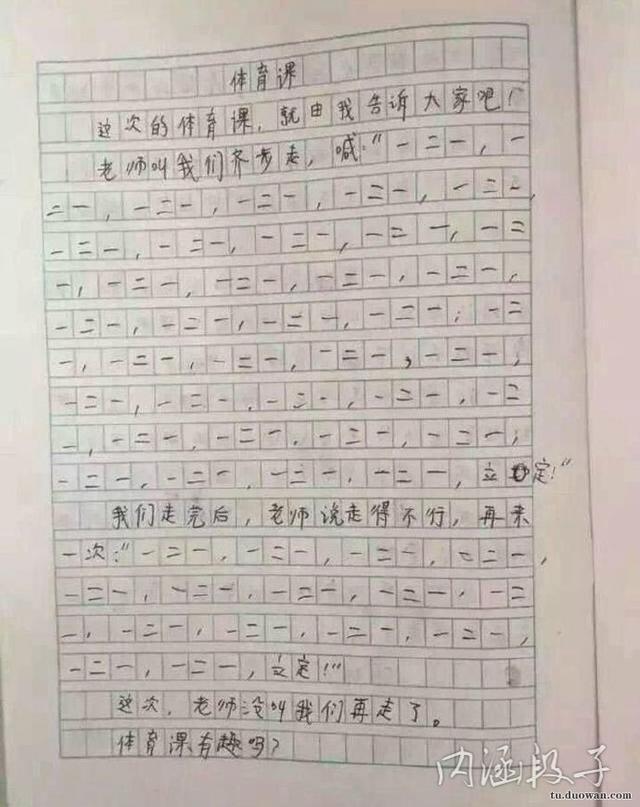 体育课
这次的体育课，就由我告诉大家吧！
老师叫我们齐步走，喊：“一二一，一
二一，一二一，一二一，一二一，一二一，
一二一，一二一，一二一，一二一，一二
一，一二一，一二一，一二一，一二一，
一二一，一二一，一二一，一二一，一二
一，一二一，一二一，一二一，一二一，
一二一，一二一，一二一，一二一，一二
一，一二一，一二一，一二一，一二一，
一二一，一二一，一二一，一二一，立定！”
我们走完后，老师说走得不行，再来
一次：“一二一，一二一，一二一，一二一，
一二一，一二一，一二一，一二一，一二
一，一二一，一二一，一二一，一二一，
一二一，一二一，立定！”
这次，老师没叫我们再走了。
体育课有趣吗？
内涵段子
tu.duowan.com